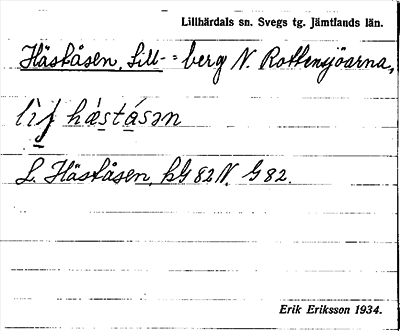 Lillhärdals sn. Svegs tg. Jämtlands län.
Håståsen, Lill- = berg N. Rottensjöarna,
håstásən
L. Håståsen, kG 82 N. G 82.
Erik Eriksson 1934.